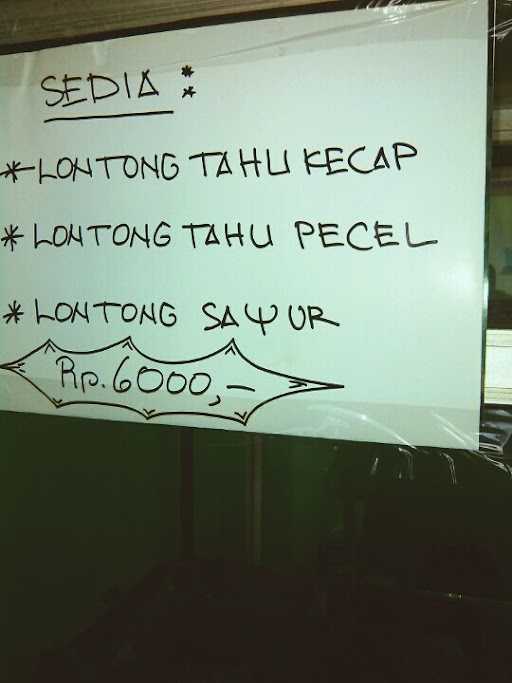 SEDIA :
* LONTONG TAHU KECAP
* LONTONG TAHU PECEL
* LONTONG SAYUR
Rp. 6000,-